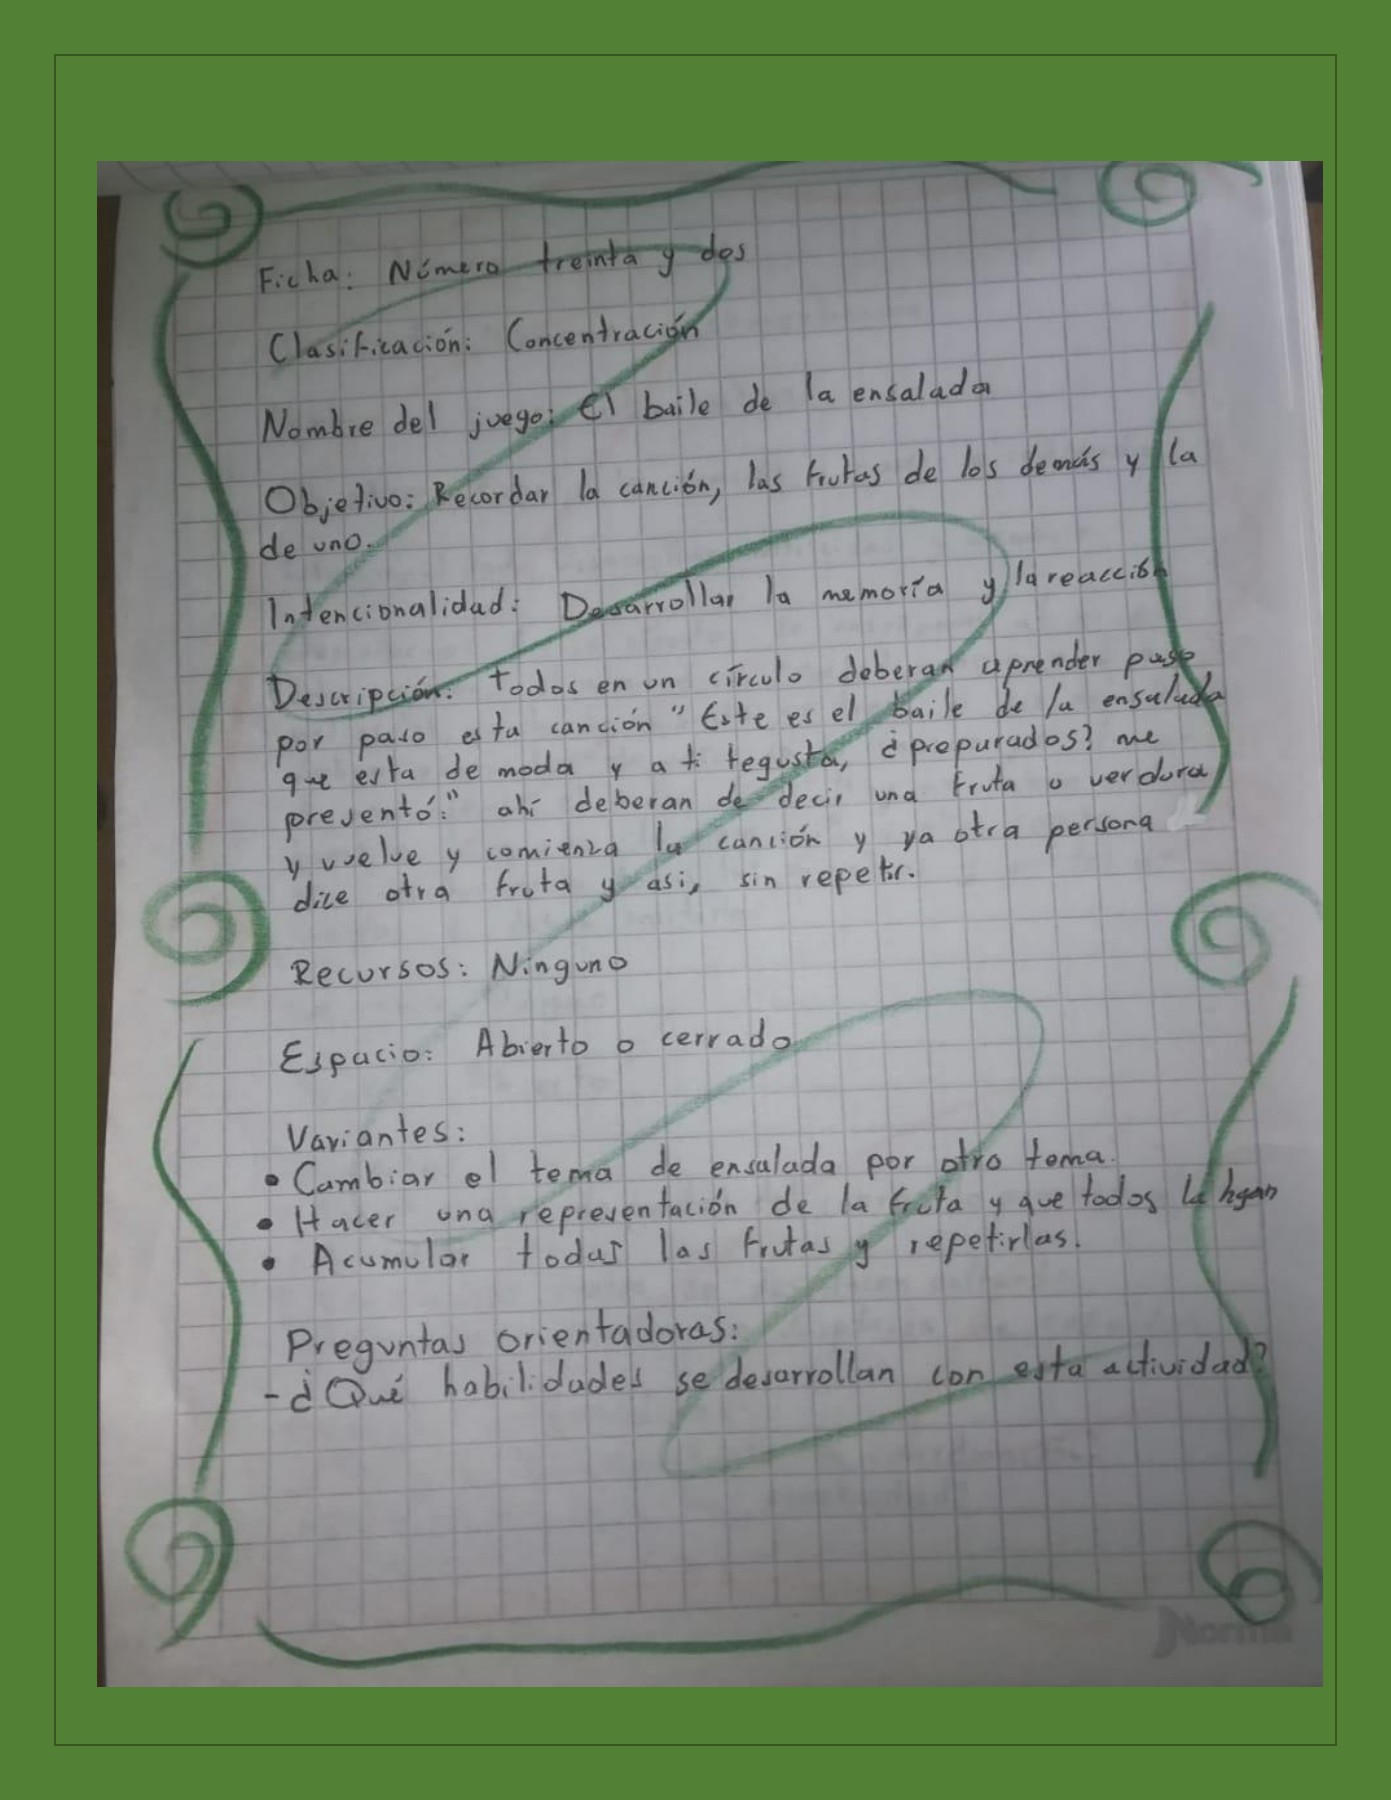 Ficha: Número treinta y dos
Clasificación: Concentración
Nombre del juego: El baile de la ensalada
Objetivo: Recordar la canción, las frutas de los demás y la
de uno.
Intencionalidad: Desarrollar la memoria y la reacción
Descripción: todos en un círculo deberan aprender paso
por paso esta canción "Este es el baile de la ensalada
que esta de moda y a ti tegusta, ¿preparados? me
presentó:" ahí deberan de decir una fruta o verdura
y vuelve y comienza la canción y ya otra persona
dice otra fruta y asi, sin repetir.
Recursos: Ninguno
Espacio: Abierto o cerrado
Variantes:
• Cambiar el tema de ensalada por otro tema.
• Hacer una representación de la fruta y que todos la hgan
• Acumular todas las frutas y repetirlas.
Preguntas orientadoras:
- ¿Qué habilidades se desarrollan con esta actividad?
Norma